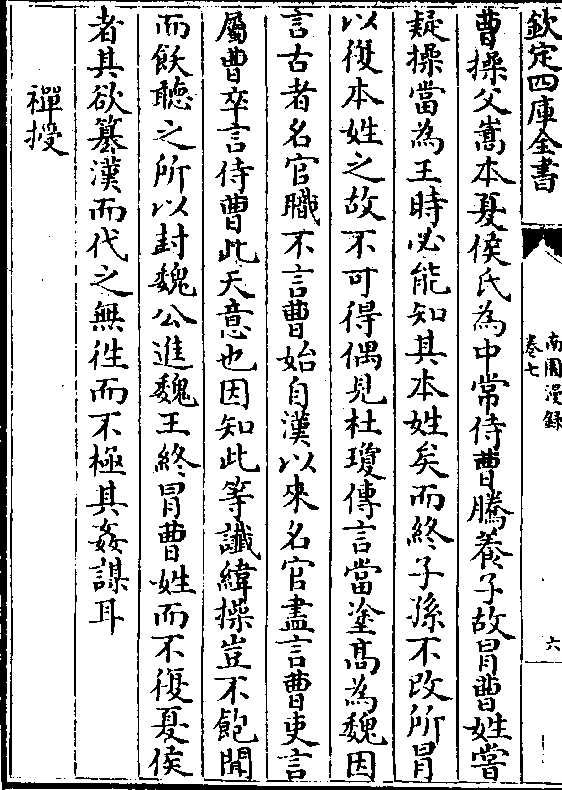 欽定四庫全書
南園漫錄
卷七
六
曹操父嵩本夏侯氏為中常侍曹騰養子故冒曹姓嘗
疑操當為王時必能知其本姓矣而終子孫不改所冒
以復本姓之故不可得偶見杜瓊傳言當塗髙為魏因
言古者名官職不言曹始自漢以來名官盡言曹吏言
屬曹卒言侍曹此天意也因知此等讖緯操豈不飽聞
而飫聽之所以封魏公進魏王終冒曹姓而不復夏侯
者其欲篡漢而代之無徃而不極其姦謀耳
禪授